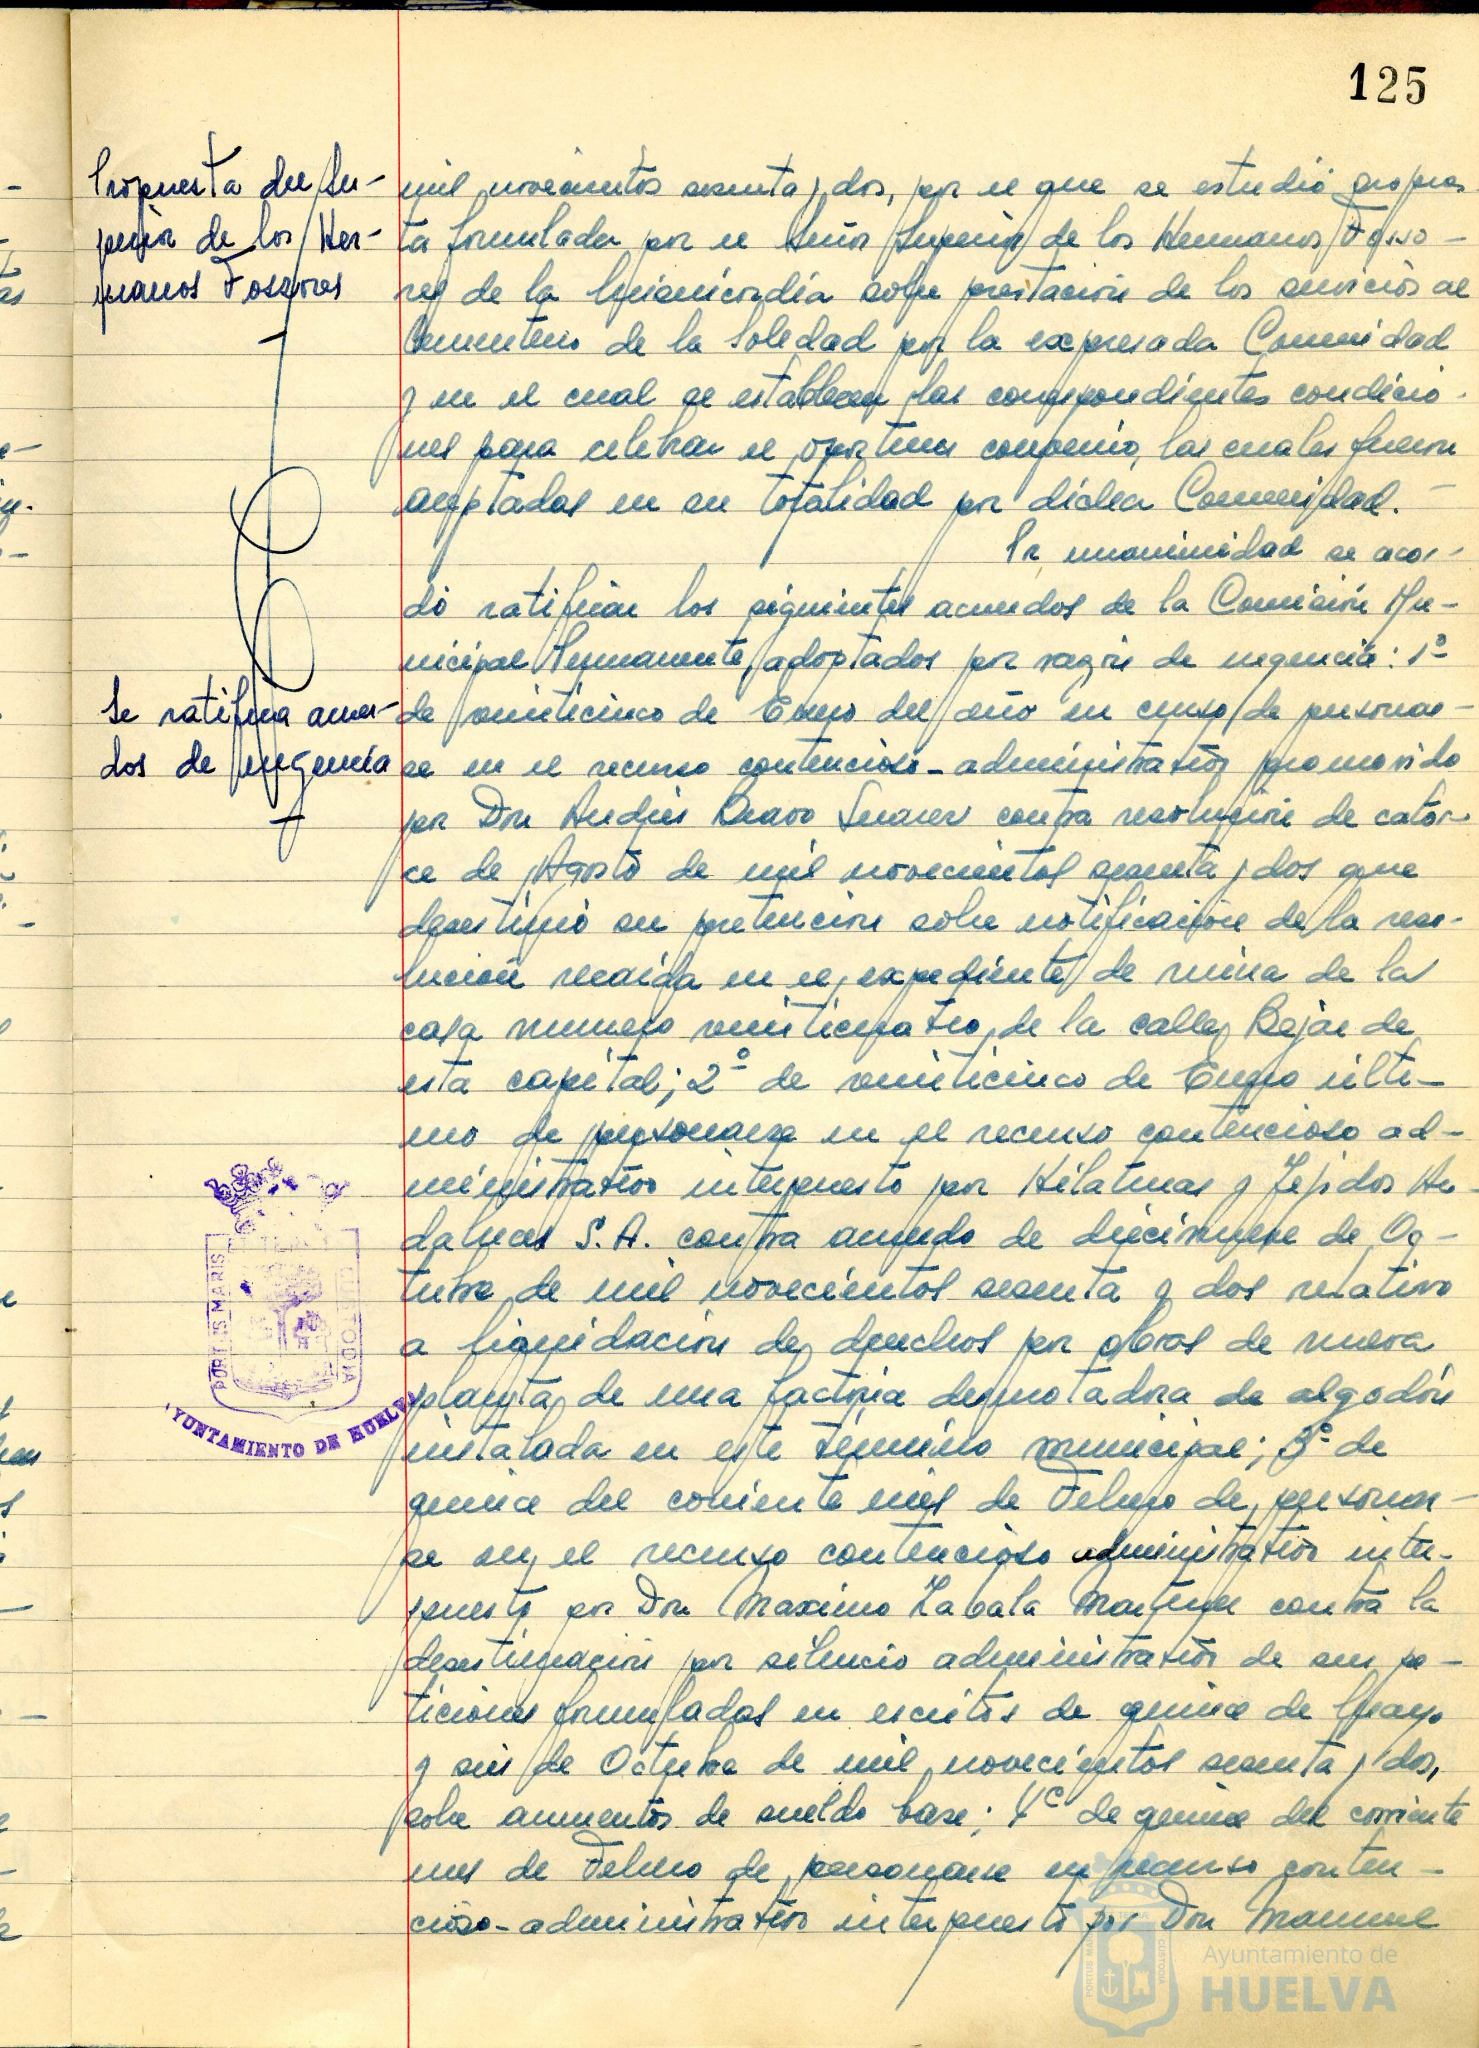 125
Propuesta del Su-
perior de los Her-
manos Fossores
mil novecientos sesenta y dos, por el que se estudió propues
ta formulada por el Señor Superior de los Hermanos Fosso-
res de la Misericordia sobre prestación de los servicios al
Cementerio de la Soledad por la expresada Comunidad
y en el cual se establecen las correspondientes condicio-
nes para celebrar el oportuno convenio, las cuales fueron
aceptadas en su totalidad por dicha Comunidad.
Por unanimidad se acor-
dó ratificar los siguientes acuerdos de la Comisión Mu-
nicipal Permanente, adoptados por razón de urgencia: 1º
Se ratifica acuer-
dos de urgencia
de veinticinco de Enero del año en curso, de personar-
se en el recurso contencioso-administrativo promovido
por Don Andrés Bravo Suarez contra resolución de cator-
ce de Agosto de mil novecientos sesenta y dos que
desestimó su pretención sobre notificación de la reso-
lución recaída en el expediente de ruina de la
casa numero veinticuatro de la calle Bejar de
esta capital; 2º de veinticinco de Enero últi-
mo de personarse en el recurso contencioso ad-
ministrativo interpuesto por Hilaturas y Tejidos An-
daluces S.A. contra acuerdo de diecinueve de Oc-
tubre de mil novecientos sesenta y dos relativo
a liquidación de derechos por obras de nueva
planta de una factoria desmotadora de algodón
instalada en este término municipal; 3º de
quince del corriente mes de Febrero de personar-
se en el recurso contencioso administrativo inter-
puesto por Don Maximo Zabala Martinez contra la
desestimación por silencio administrativo de sus pe-
ticiones formuladas en escritos de quince de Mayo
y seis de Octubre de mil novecientos sesenta y dos,
sobre aumentos de sueldo base; 4º de quince del corriente
mes de Febrero de personarse en recurso conten-
cioso-administrativo interpuesto por Don Manuel
PORTUS MARIS
CUSTODIA
AYUNTAMIENTO DE HUELVA
Ayuntamiento de
HUELVA